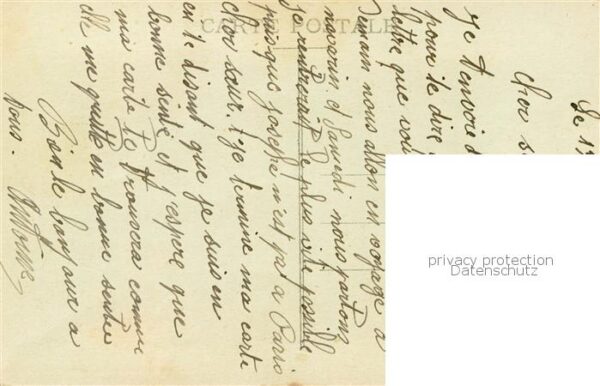 CARTE POSTALE
Le 1
Cher s
Je t'envoie
pour te dire
lettre que
Demain nous allon en voyage a
et Samedi nous partons
je rentrerait le plus vite possible
puisque Josephe n'est pas a Paris
cher sœur. Je termine ma carte
en te disant que je suis en
bonne sente et j'espere que
ma carte te trouvera comme
elle me quitte en bonne sentée
Bien le bonjour a
tous. Antoine
privacy protection
Datenschutz